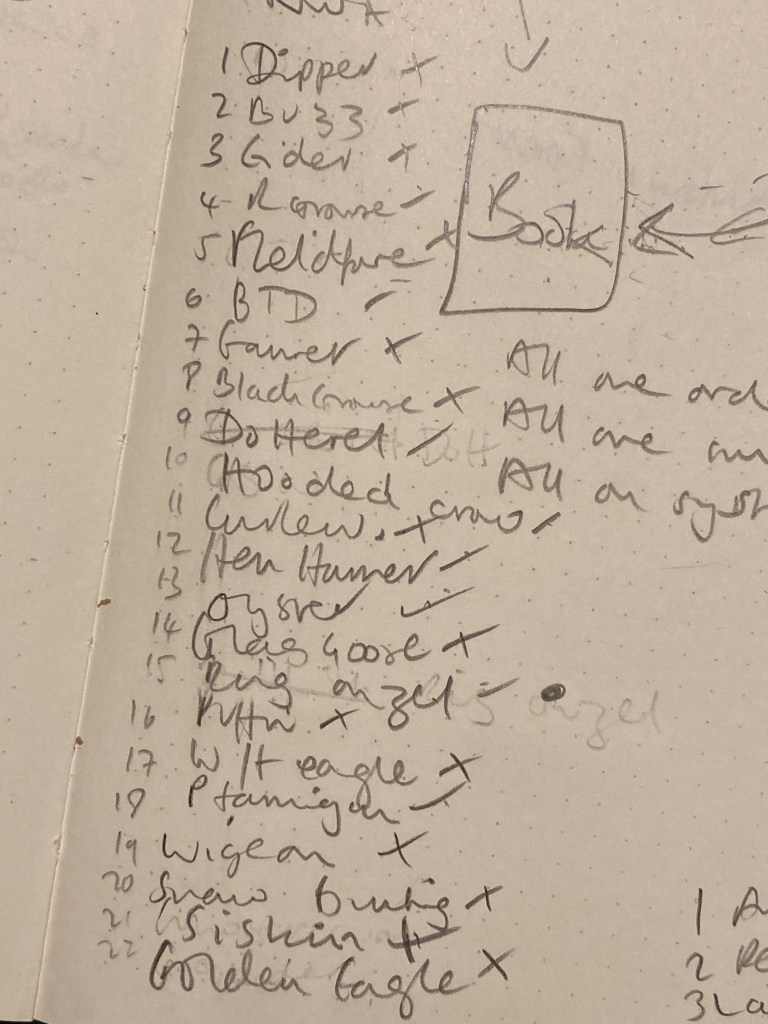 1 Dipper x
2 Buzz x
3 Eider x
4 R Grouse –
5 Fieldfare x
Book
6 BTD –
7 Gannet x
8 Black Grouse x
All are ord
9 Dotterel ✓
All are
10 Hooded crow ✓
All on syst
11 Curlew. x
12 Hen Harrier –
13 Oyster ✓
14 Grag Goose x
15 Ring ouzel –
16 Puffin x
17 W/t eagle x
18 Ptarmigan –
19 Wigeon x
20 Snow Bunting x
21 Siskin x
22 Golden Eagle x
1 A
2 Re
3 La